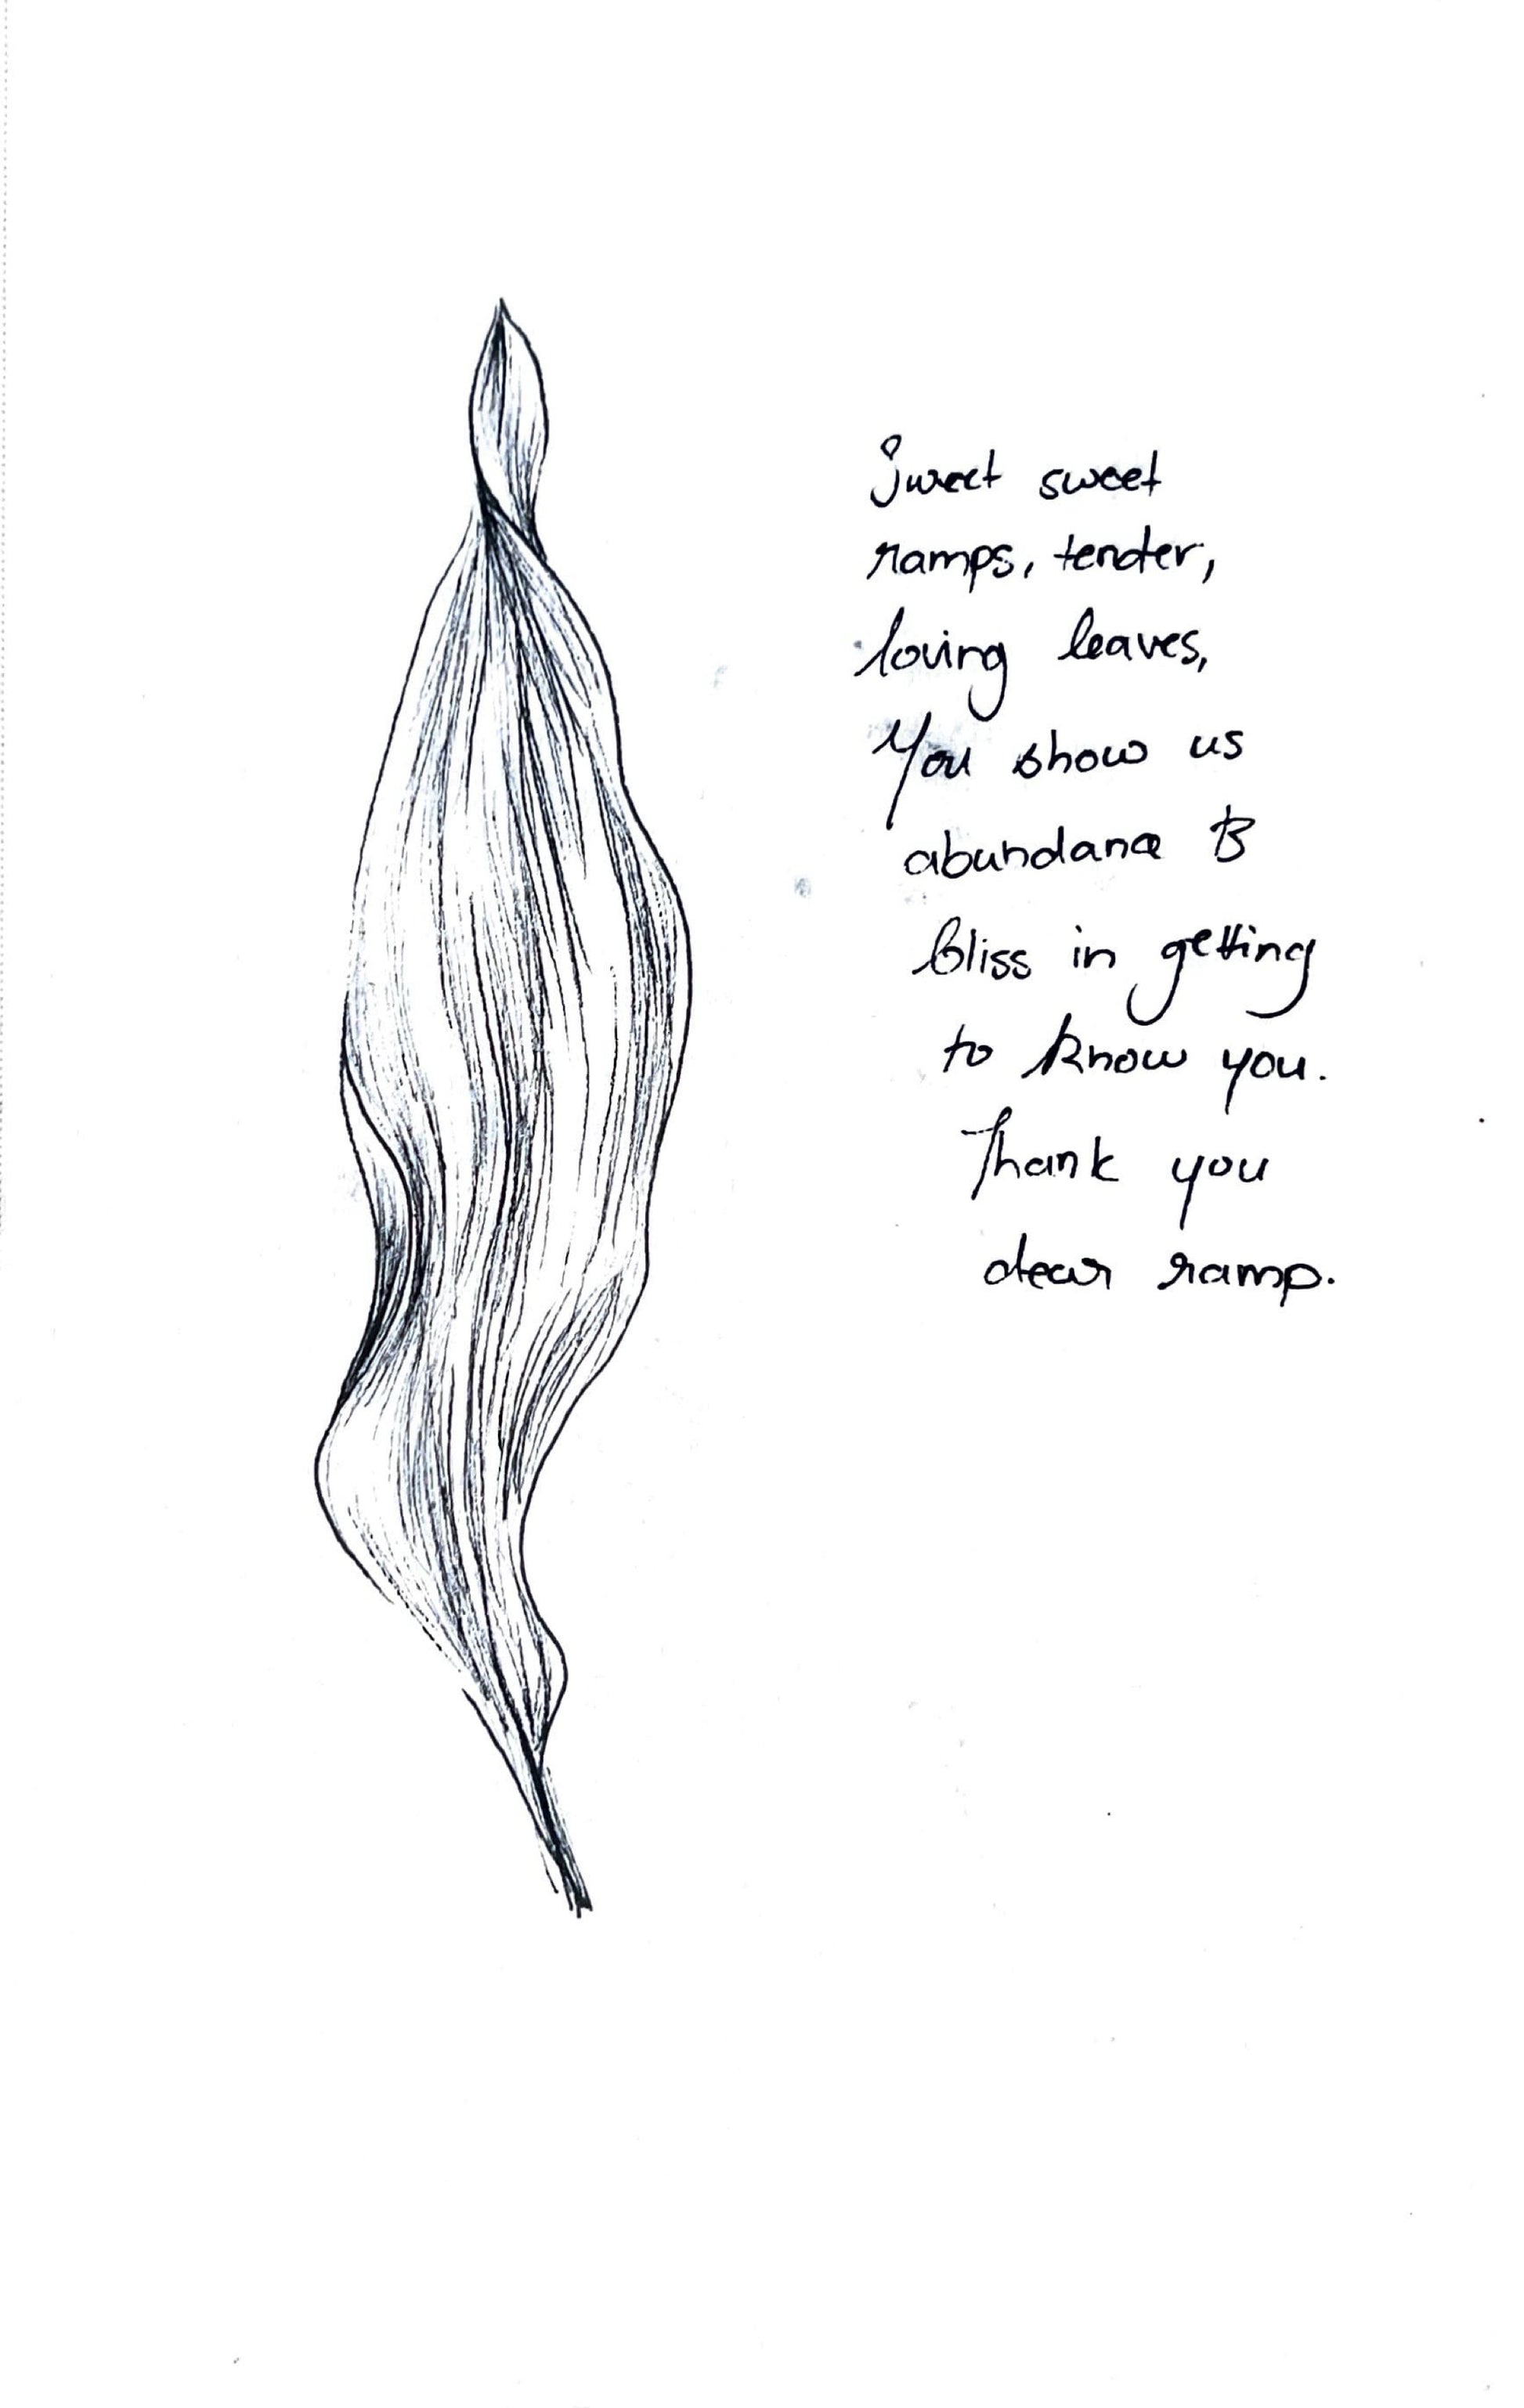 Sweet sweet
ramps, tender,
loving leaves,
You show us
abundance &
bliss in getting
to know you.
Thank you
dear ramp.